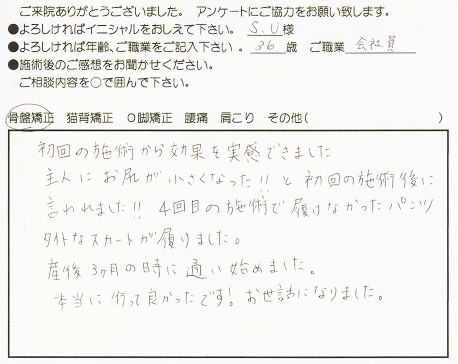 ご来院ありがとうございました。 アンケートにご協力をお願い致します。
●よろしければイニシャルをおしえて下さい。 S.U 様
●よろしければ年齢、ご職業をご記入下さい。 36 歳 ご職業 会社員
●施術後のご感想をお聞かせください。
ご相談内容を○で囲んで下さい。
骨盤矯正 猫背矯正 O脚矯正 腰痛 肩こり その他( )
初回の施術から効果を実感できました
主人にお尻が小さくなった!! と初回の施術後に
言われました!! 4回目の施術で履けなかったパンツ
タイトなスカートが履けました。
産後3ヶ月の時に通い始めました。
本当に行って良かったです! お世話になりました。